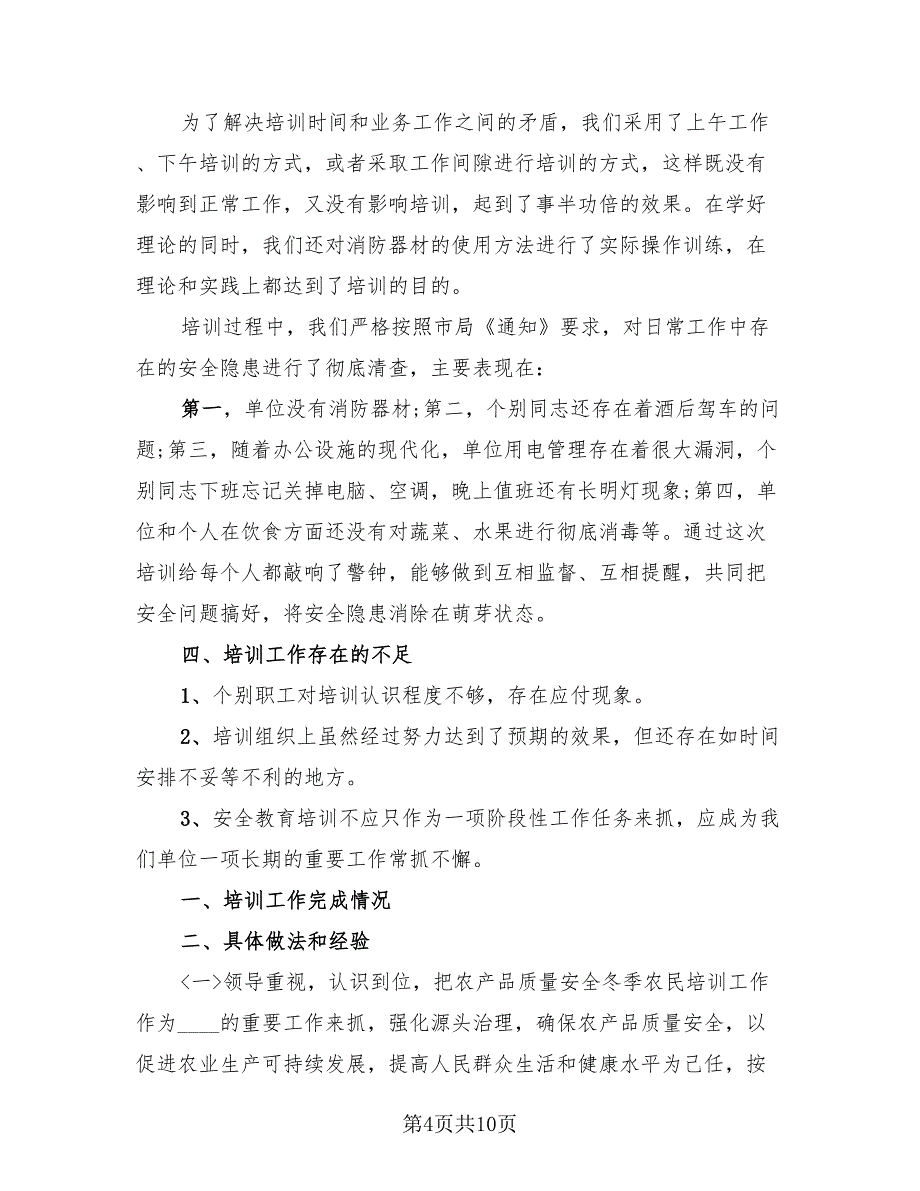 为了解决培训时间和业务工作之间的矛盾，我们采用了上午工作
、下午培训的方式，或者采取工作间隙进行培训的方式，这样既没有
影响到正常工作，又没有影响培训，起到了事半功倍的效果。在学好
理论的同时，我们还对消防器材的使用方法进行了实际操作训练，在
理论和实践上都达到了培训的目的。
培训过程中，我们严格按照市局《通知》要求，对日常工作中存
在的安全隐患进行了彻底清查，主要表现在：
第一，单位没有消防器材;第二，个别同志还存在着酒后驾车的问
题;第三，随着办公设施的现代化，单位用电管理存在着很大漏洞，个
别同志下班忘记关掉电脑、空调，晚上值班还有长明灯现象;第四，单
位和个人在饮食方面还没有对蔬菜、水果进行彻底消毒等。通过这次
培训给每个人都敲响了警钟，能够做到互相监督、互相提醒，共同把
安全问题搞好，将安全隐患消除在萌芽状态。
四、培训工作存在的不足
1、个别职工对培训认识程度不够，存在应付现象。
2、培训组织上虽然经过努力达到了预期的效果，但还存在如时间
安排不妥等不利的地方。
3、安全教育培训不应只作为一项阶段性工作任务来抓，应成为我
们单位一项长期的重要工作常抓不懈。
一、培训工作完成情况
二、具体做法和经验
<一>领导重视，认识到位，把农产品质量安全冬季农民培训工作
作为____的重要工作来抓，强化源头治理，确保农产品质量安全，以
促进农业生产可持续发展，提高人民群众生活和健康水平为己任，按
第4页共10页